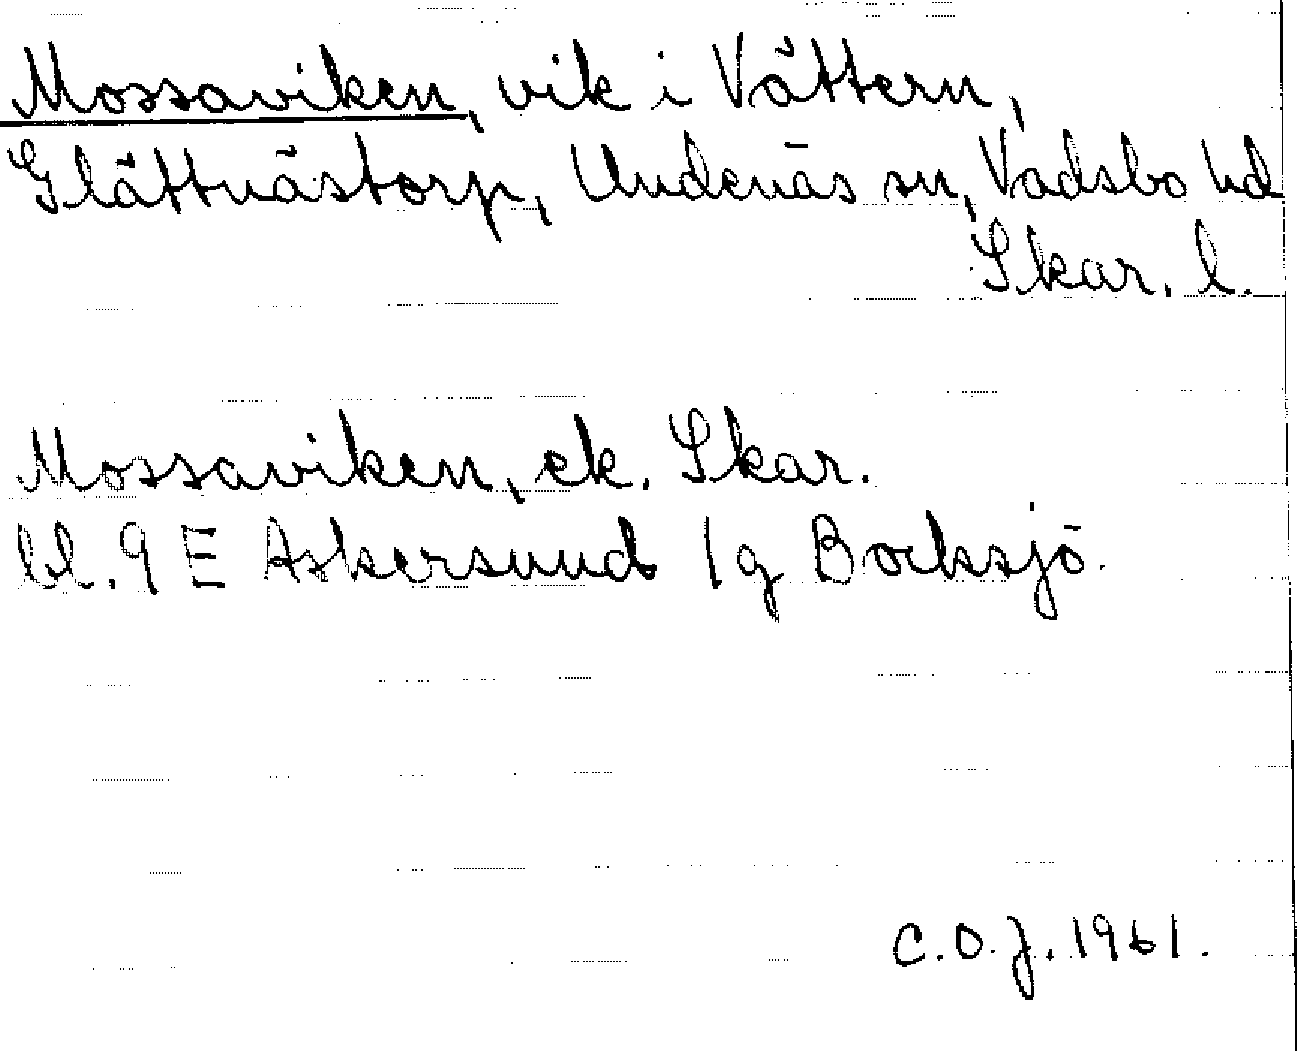 Mossaviken, vik i Vättern,
Glättnästorp, Undenäs sn, Vadsbo hd
Skar. l.
Mossaviken, ek. Skar.
bl. 9 E Askersund 1g Bocksjö.
C.O.J. 1961.